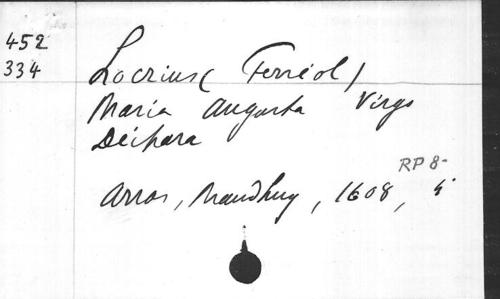 452
334
Locrius (Ferréol)
Maria Augusta Virgo
Deipara
RP 8-
Arras, Maudhuy, 1608, 4